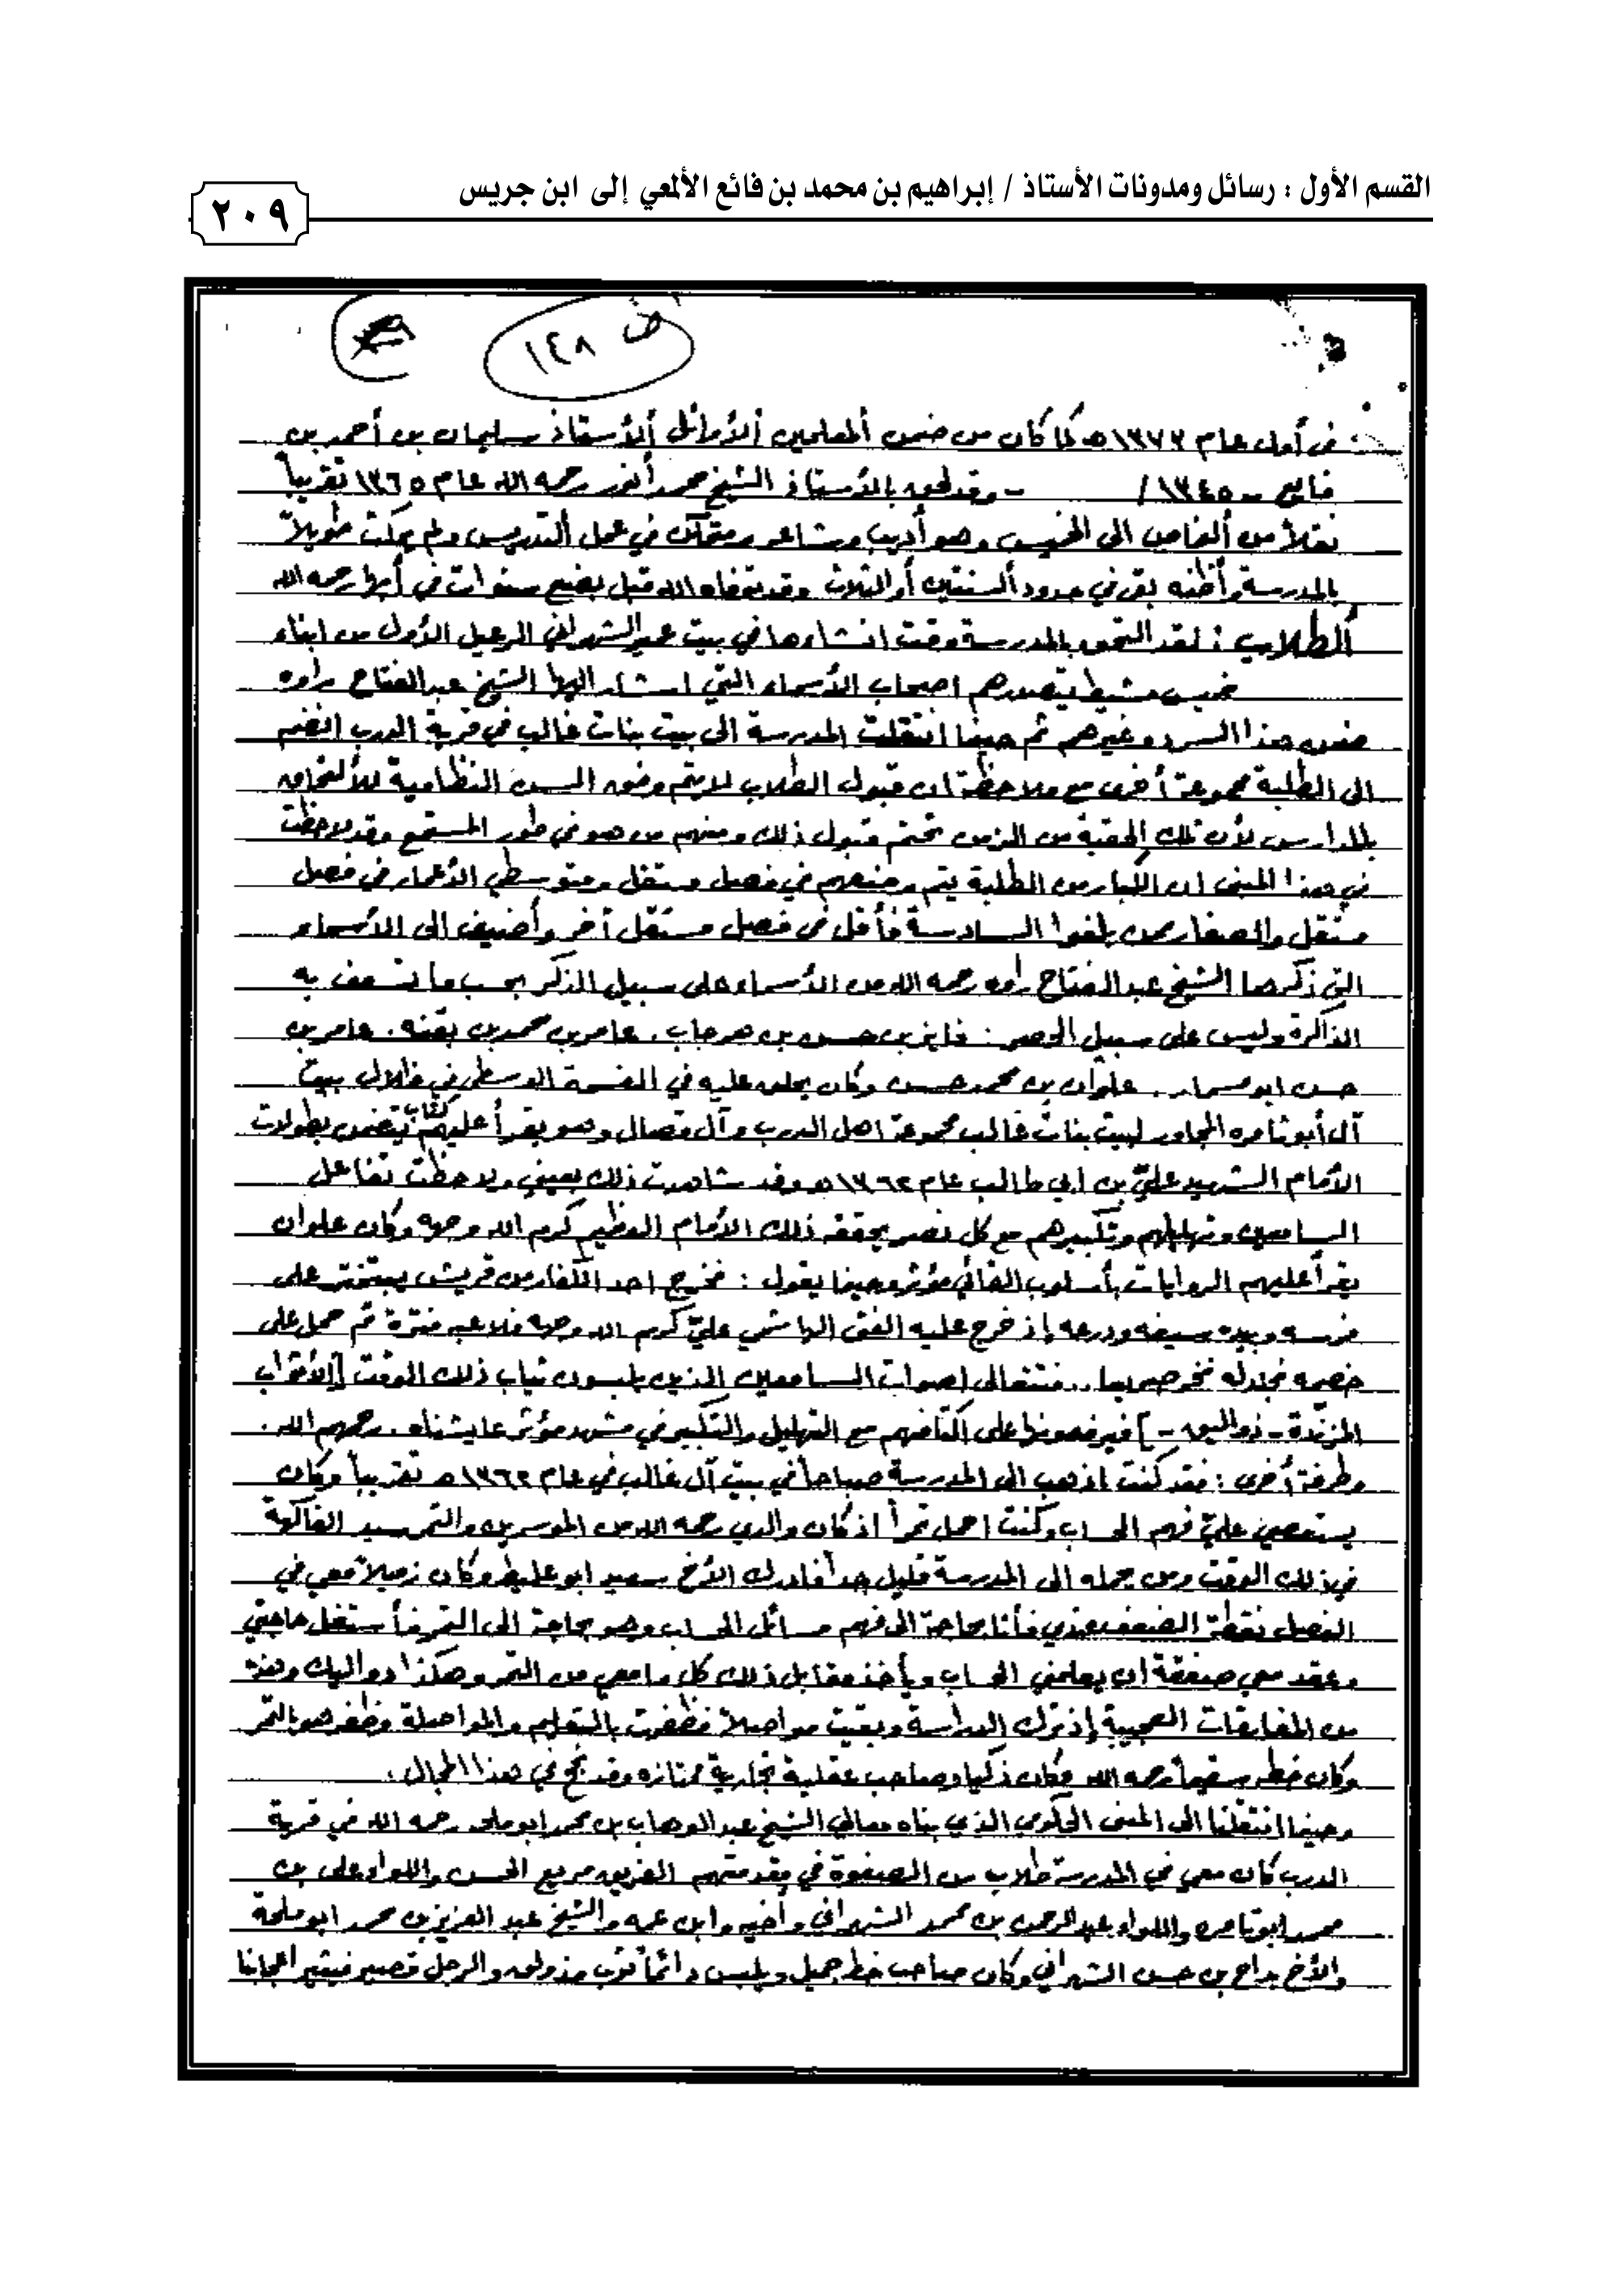 القسم الأول : رسائل ومدونات الأستاذ / إبراهيم بن محمد بن فائع الألمعي إلى ابن جريس
٢٠٩
ض ١٤٨
في أول عام ١٣٧٣هـ كما كان من ضمن ألمعلمين ألأوائل ألأستاذ سليمان بن أحمد بن
فايع - ١٣٤٥ / - وقد لحق بالأستاذ الشيخ محمد أنور رحمه الله عام ١٣٦٥ تقريباً
نقلاً من ألخاص الى الخميس وهو أديب وشاعر ومتمكن في عمل ألتدريس ولم يمكث طويلاً
بالمدرسة وأظنه بقى في حدود ألسنتين أو الثلاث وقد توفاه الله قبل بضع سنوات في أبها رحمه الله
ألطلاب : لقد التحق بالمدرسة وقت انشاءها في بيت عمير الشهراني الرعيل الأول من ابناء
خميس مشيط يتصدرهم اصحاب الأسماء التي اشار اليها الشيخ عبدالفتاح راوه
ضمن هذا السرد وغيرهم ثم حينما انتقلت المدرسة الى بيت بنات غالب في قرية الدرب انضم
الى الطلبة مجموعة أخرى مع ملاحظة ان قبول الطلاب لا يتم وفق السن النظامية للألتحاق
بالمدارس لأن تلك الحقبة من الزمن تحتم قبول ذلك ومنهم من هو في طور وقد لاحظت
في هذا المبنى ان الكبار من الطلبة يتم وضعهم في فصل مستقل ومتوسطي الأعمار في فصل
مستقل والصغار ممن بلغوا السادسة فأقل في فصل مستقل أخر وأضيف الى الأسماء
التي ذكرها الشيخ عبدالفتاح راوه رحمه الله من الأسماء على سبيل الذكر بحسب ما تسعف به
الذاكرة وليس على سبيل الحصر : فايز بن حسن بن هرجاب . عامر بن محمد بن بقنه . عامر بن
حسن ابو مسمار . علوان بن محمد حسن وكان يجلس عليه في الفسحة الوسطى في ظلال بيت
آل أبو ثامره المجاور لبيت بنات غالب مجموعة اهل الدرب وآل قصال وهو يقرأ عليهم كتاب يتضمن بطولات
الأمام الشهيد عليّ بن ابي طالب عام ١٣٦٢هـ وقد شاهدت ذلك بعيني ولاحظت تفاعل
السامعين وتهليلهم وتكبيرهم مع كل نصر يحققه ذلك الأمام العظيم كرم الله وجهه وكان علوان
يقرأ عليهم الروايات بأسلوب القائي مؤثر وحينما يقول : فخرج احد الكفار من قريش يتبختر على
فرسه وبيده سيفه ودرعه إذ خرج عليه الفتى الهاشمي عليّ كرم الله وجهه فلاعبه فترة ثم حمل على
خصمه فجندله فخر صريعا .. فتتعالى اصوات السامعين الذين يلبسون ثياب ذلك الوقت [الأثواب
المزندة - ذو اليوه -] فيرفعونها على اكتافهم مع التهليل والتكبير في مشهد مؤثر عايشناه . رحمهم الله .
وطرفة أخرى : فقد كنت اذهب الى المدرسة صباحاً في بيت آل غالب في عام ١٣٦٢هـ تقريباً وكان
يستعصي عليّ فهم الحساب وكنت احمل تمراً اذ كان والدي رحمه الله من الموسرين والتمر سيد الفاكهة
في ذلك الوقت ومن يحمله الى المدرسة قليل جداً فادرك الأخ سعيد ابو عليط وكان زميلاً معي في
الفصل نقطة الضعف عندي فأنا بحاجة الى فهم مسائل الحساب وهو بحاجة الى التمر فأستغل حاجتي
وعقد معي صفقة ان يعلمني الحساب ويأخذ مقابل ذلك كل ما معي من التمر وهكذا دواليك وهذه
من المفارقات العجيبة إذ ترك الدراسة وبقيت مواصلاً فظفرت بالتعليم والمواصلة وظفر هو بالتمر
وكان خطه سقيماً رحمه الله وكان ذكيا وصاحب عقلية تجارية ممتازه وقد نجح في هذا المجال .
وحينما انتقلنا الى المبنى الحكومي الذي بناه معالي الشيخ عبدالوهاب بن محمد ابو ملحه رحمه الله في قرية
الدرب كان معي في المدرسة طلاب من الصفوة في مقدمتهم الفريق مريع الحسن واللواء علي بن
محمد ابو ثامره واللواء عبدالرحمن بن محمد الشهراني وأخيه وابن عمه والشيخ عبد العزيز بن محمد ابو ملحة
والأخ بداح بن حسن الشهراني وكان صاحب خط جميل ويلبس دائماً ثوب مذولق والرجل قصير فيثير اعجابنا